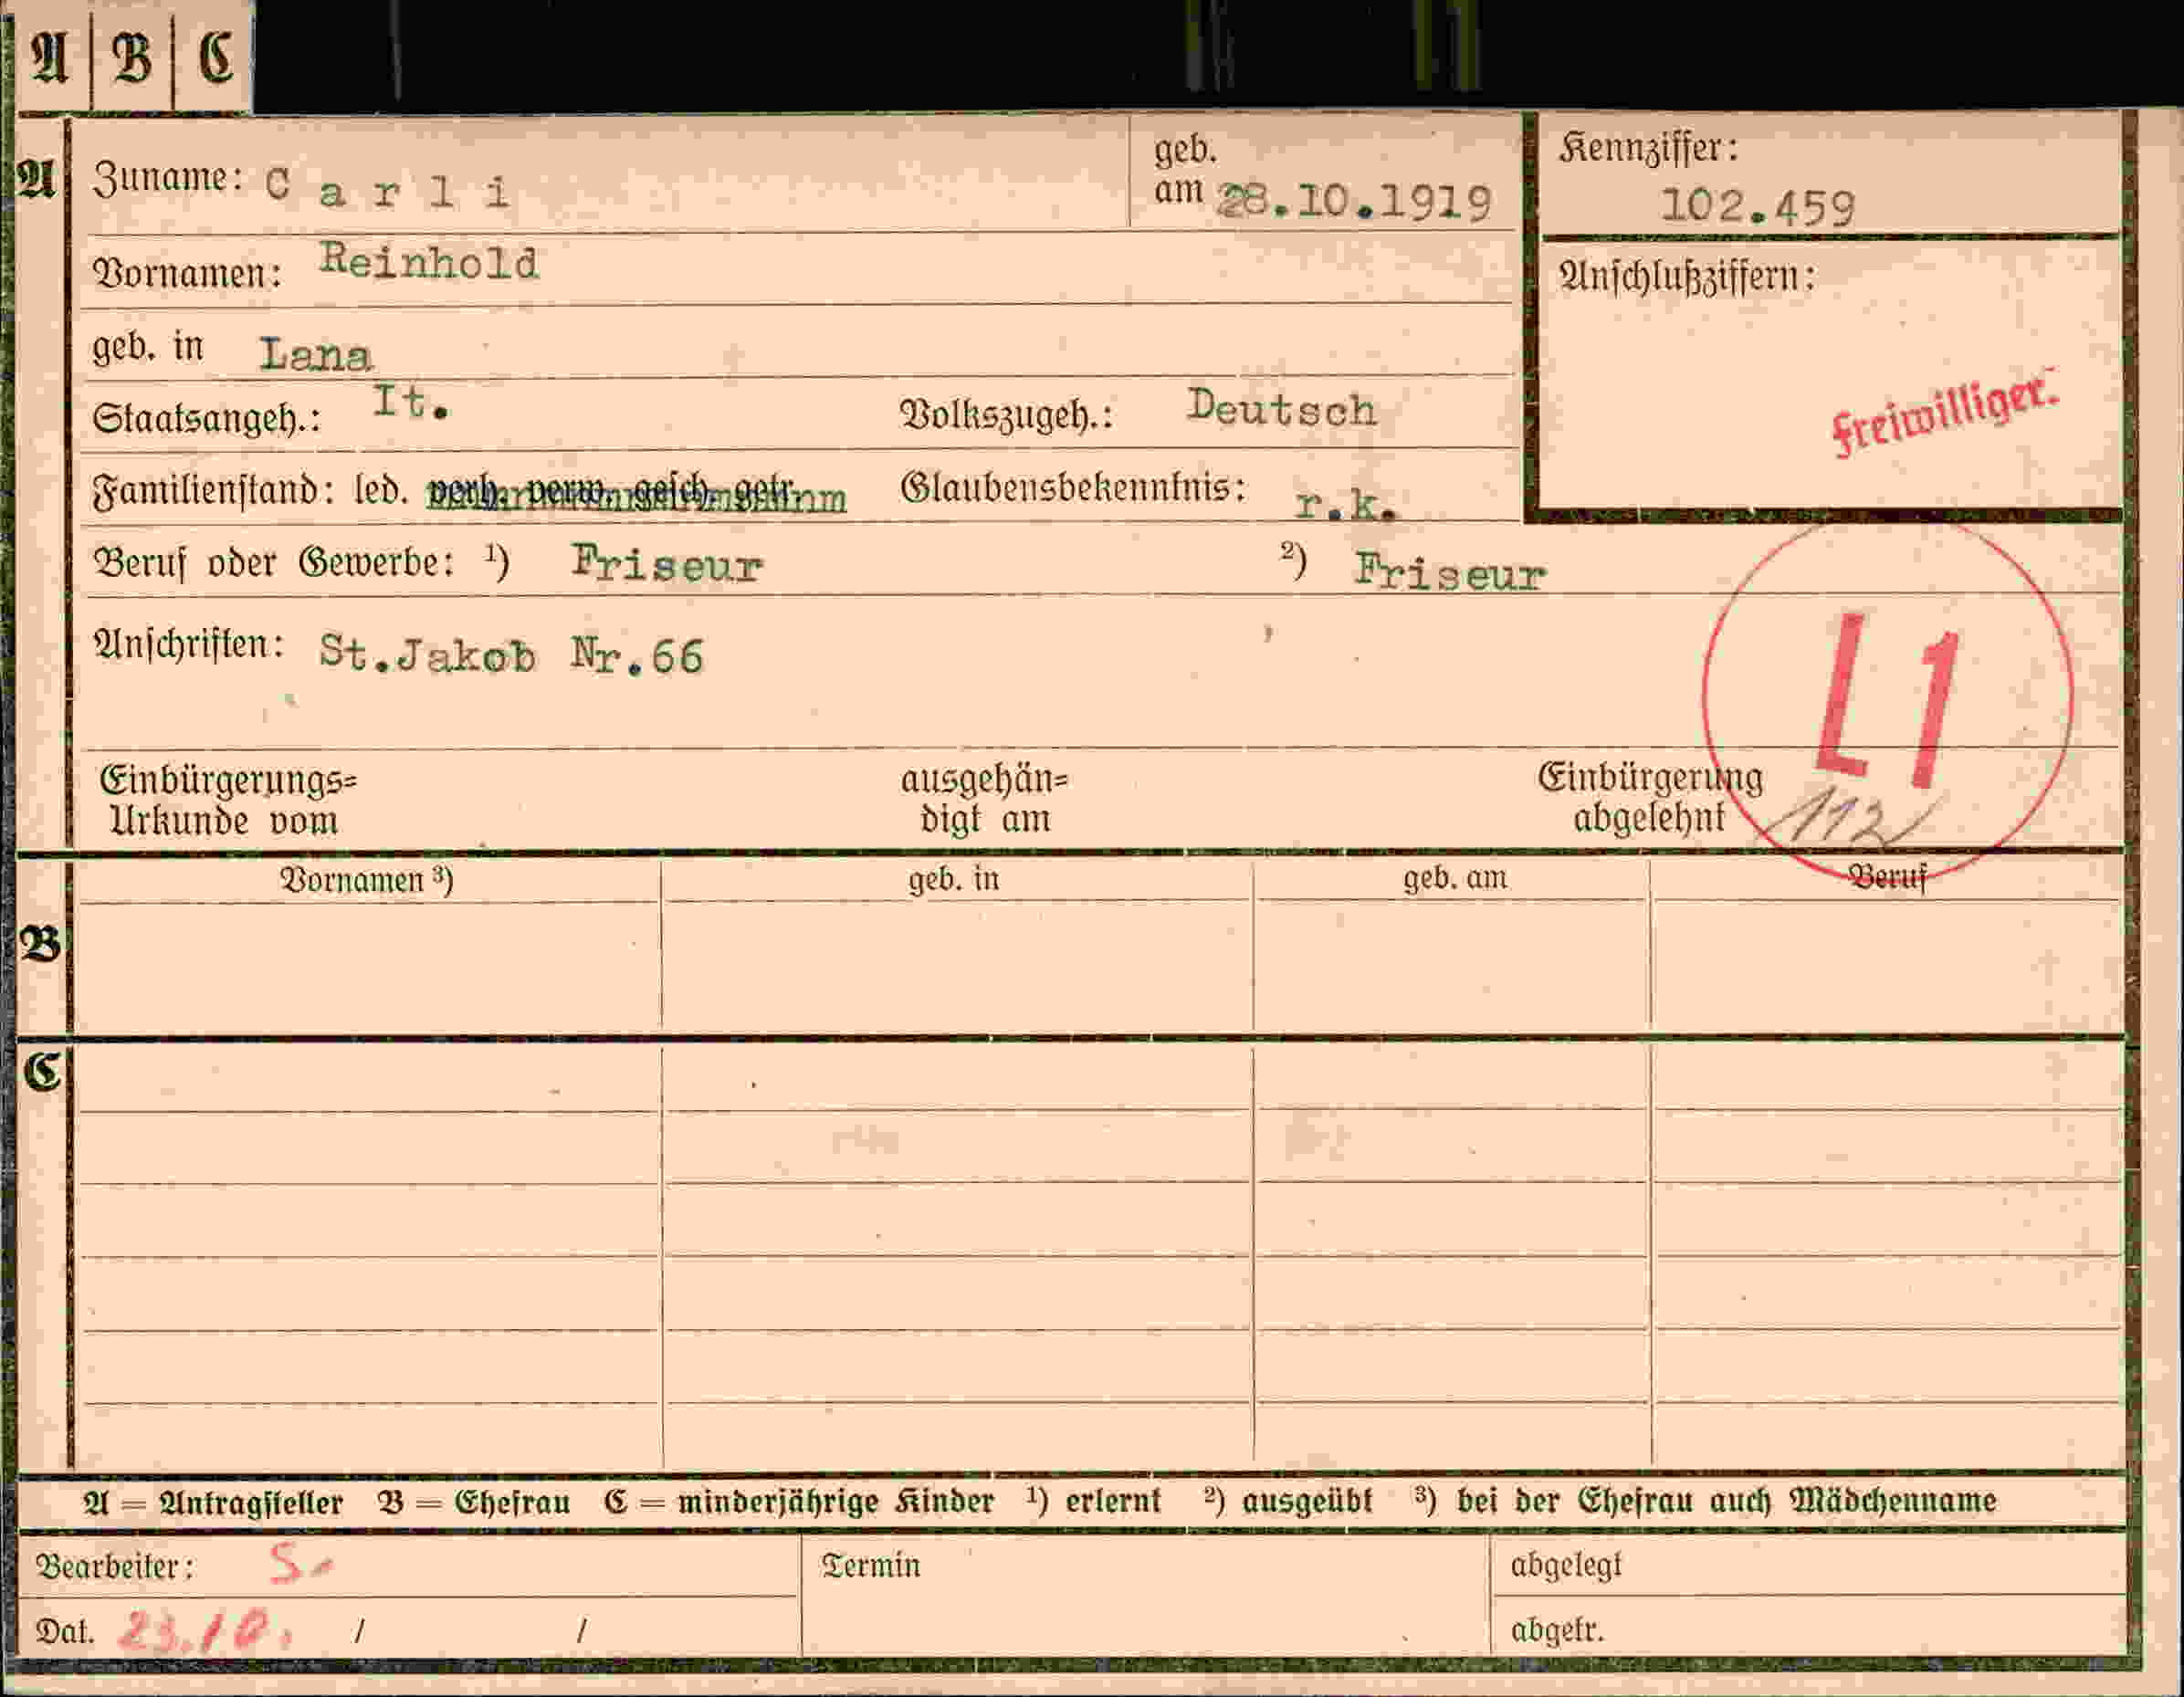 A B C
A Zuname: Carli geb. am 28.10.1919 Kennziffer: 102.459
Vornamen: Reinhold Anschlußziffern:
geb. in Lana
Staatsangeh.: It. Volkszugeh.: Deutsch freiwilliger.
Familienstand: led. verh. verw. gesch. getr. Glaubensbekenntnis: r.k.
Beruf oder Gewerbe: ¹) Friseur ²) Friseur
Anschriften: St.Jakob Nr.66 L1
Einbürgerungs= ausgehän= Einbürgerung
Urkunde vom digt am abgelehnt 112
Vornamen ³) geb. in geb. am Beruf
B
C
A = Antragsteller B = Ehefrau C = minderjährige Kinder ¹) erlernt ²) ausgeübt ³) bei der Ehefrau auch Mädchenname
Bearbeiter: S. Termin abgelegt
Dat. 23.10. / / abgetr.